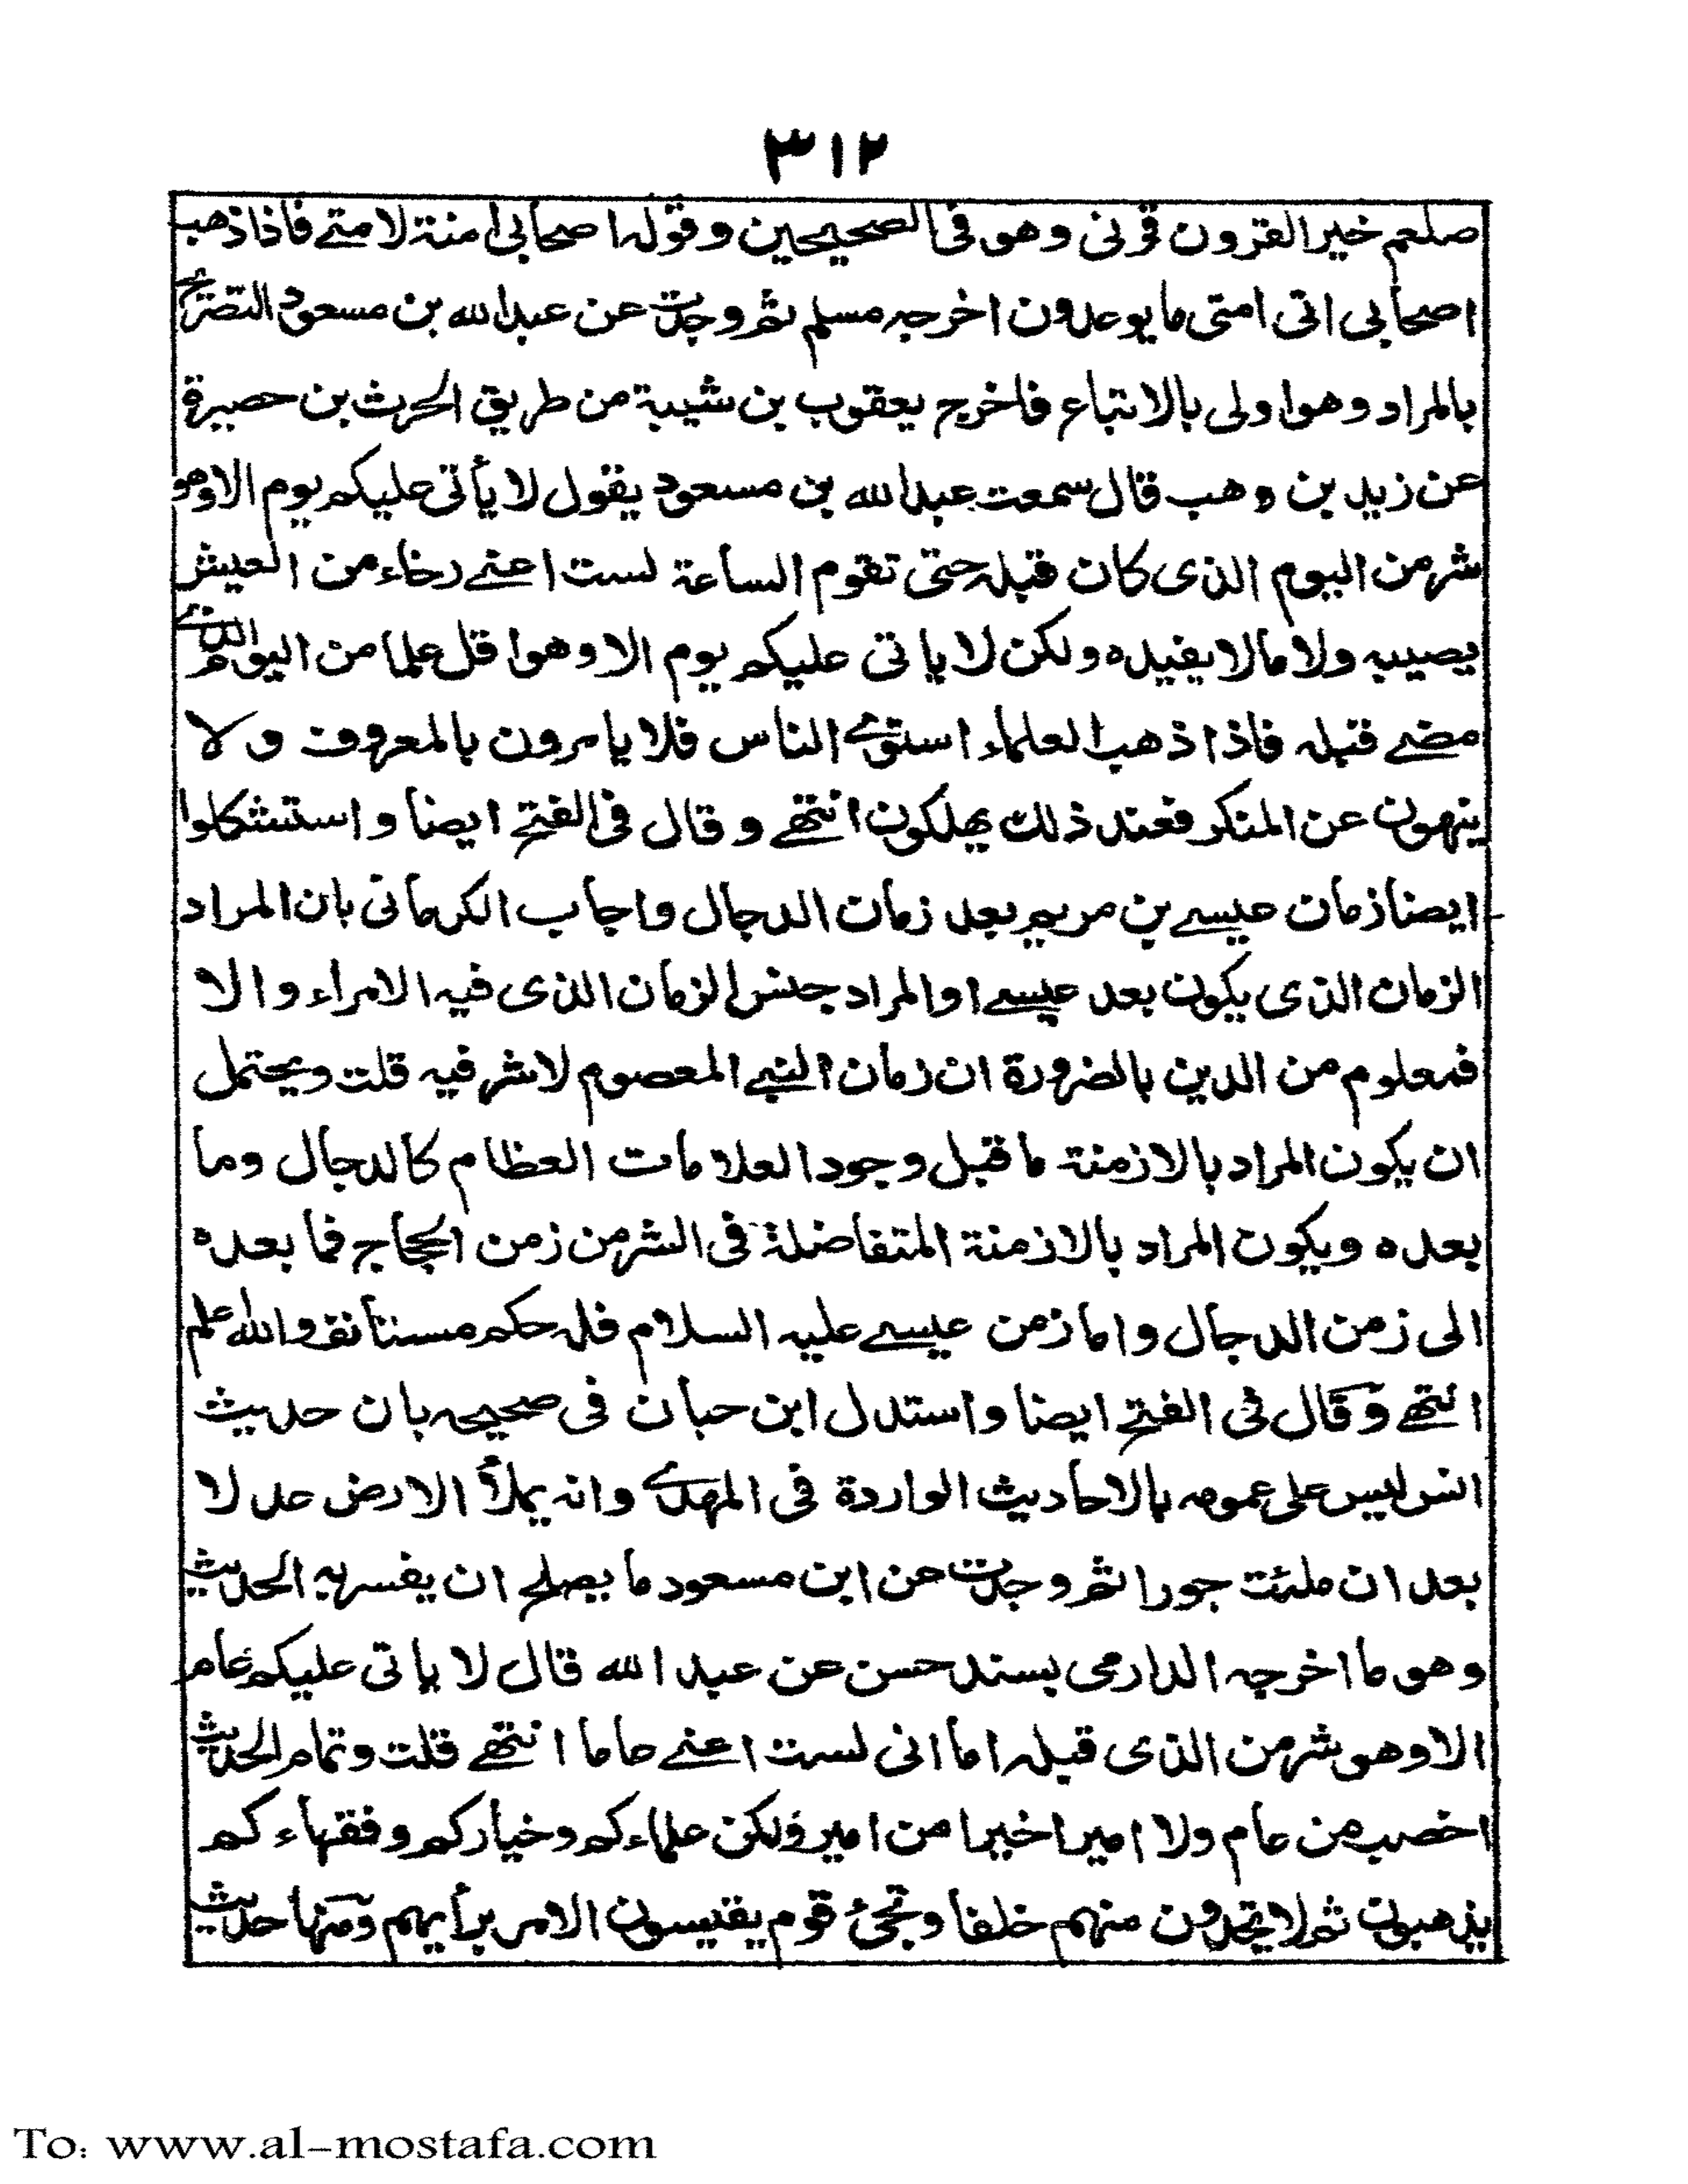 ٣١٢
صلعم خير القرون قرنى وهو فى الصحيحين وقوله اصحابى امنة لامتے فاذا ذهب
اصحابى اتى امتى ما يوعدون اخرجه مسلم ثم وجدت عن عبدالله بن مسعود التصريح
بالمراد وهو اولى بالاتباع فاخرج يعقوب بن شيبة من طريق الحرث بن حصيرة
عن زيد بن وهب قال سمعت عبدالله بن مسعود يقول لا يأتى عليكم يوم الا وهو
شر من اليوم الذى كان قبله حتى تقوم الساعة لست اعنے رخاء من العيش
يصيبه ولا مالا يفيده ولكن لا ياتى عليكم يوم الا وهو اقل علما من اليوم الذے
مضے قبله فاذا ذهب العلماء استوے الناس فلا يامرون بالمعروف ولا
ينهون عن المنكر فعند ذلك يهلكون انتهے وقال فى الفتح ايضا واستشكلوا
ايضا زمان عيسے بن مريم بعد زمان الدجال واجاب الكرمانى بان المراد
الزمان الذى يكون بعد عيسے او المراد جنس الزمان الذى فيه الامراء والا
فمعلوم من الدين بالضرورة ان زمان النبے المعصوم لا شر فيه قلت ويحتمل
ان يكون المراد بالازمنة ما قبل وجود العلامات العظام كالدجال وما
بعده ويكون المراد بالازمنة المتفاضلة فى الشر من زمن الحجاج فما بعده
الى زمن الدجال واما زمن عيسے عليه السلام فله حكم مستأنف والله اعلم
انتهے وقال فى الفتح ايضا واستدل ابن حبان فى صحيحه بان حديث
انس ليس على عمومه بالاحاديث الواردة فى المهدے وانه يملأ الارض عدلا
بعد ان ملئت جورا ثم وجدت عن ابن مسعود ما يصلح ان يفسر به الحديث
وهو ما اخرجه الدارمى بسند حسن عن عبد الله قال لا ياتى عليكم عام
الا وهو شر من الذى قبله اما انى لست اعنے عاما انتهے قلت وتمام الحديث
اخصب من عام ولا اميرا خيرا من امير ولكن علماءكم وخياركم وفقهاءكم
يذهبون ثم لا تجدون منهم خلفا وتجئ قوم يقيسون الامر برأيهم ومنها حديث
To: www.al-mostafa.com